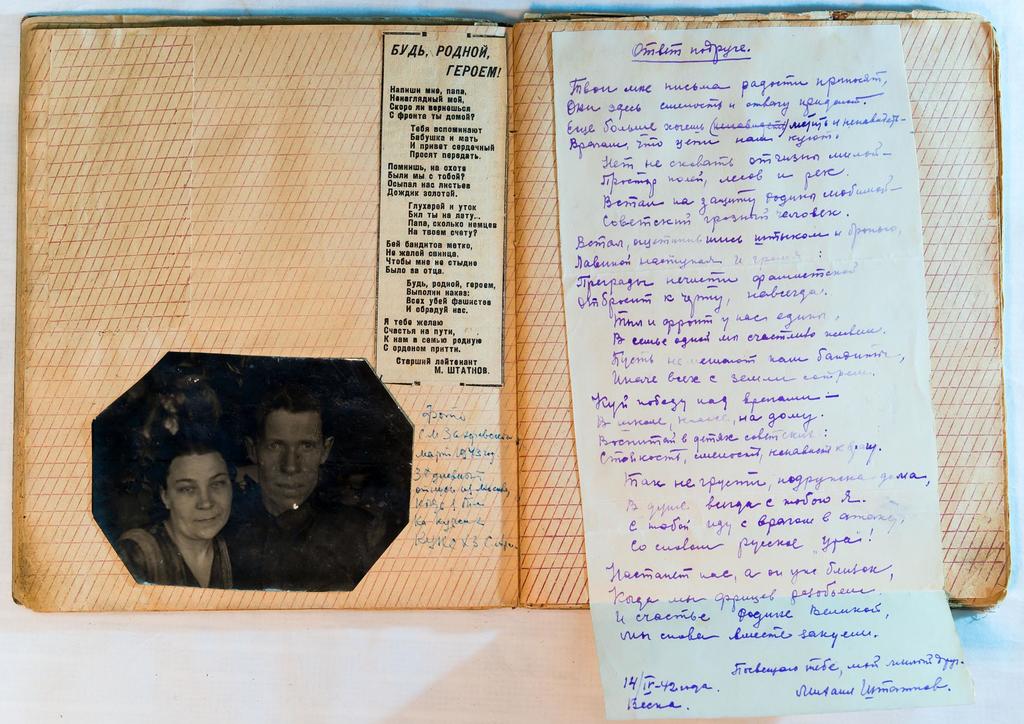 БУДЬ, РОДНОЙ,
ГЕРОЕМ!
Напиши мне, папа,
Ненаглядный мой,
Скоро ли вернешься
С фронта ты домой?
Тебя вспоминают
Бабушка и мать
И привет сердечный
Просят передать.
Помнишь, на охоте
Были мы с тобой?
Осыпал нас листьев
Дождик золотой.
Глухарей и уток
Бил ты на лету...
Папа, сколько немцев
На твоем счету?
Бей бандитов метко,
Не жалей свинца.
Чтобы мне не стыдно
Было за отца.
Будь, родной, героем,
Выполни наказ:
Всех убей фашистов
И обрадуй нас.
Я тебе желаю
Счастья на пути,
К нам в семью родную
С орденом притти.
Старший лейтенант
М. ШТАТНОВ.
Фото
март 1943 год
Ответ подруге.
Твои мне письма радости приносят,
Они здесь смелость и отвагу придают.
Еще больше хочешь (ненависть) мстить и ненавидеть
Врагам, что цепи нам куют.
Нет не сковать отчизны милой—
Простор полей, лесов и рек.
Встал на защиту родины любимой—
Советский грозный человек.
Встал, ощетинившись штыком и бронею,
Лавиной наступая и громя:
Преграды нечисти фашистской
Отбросит к чорту, навсегда.
Тыл и фронт у нас едины,
В семье одной мы счастливо живем.
Пусть не мешают нам бандиты,
Иначе всех с земли сотрем.
Куй победу над врагами—
В школе, на дому.
Воспитай в детях советских:
Стойкость, смелость, ненависть к врагу.
Так не грусти, подружка дома,
В душе всегда с тобою я.
С тобой иду с врагом в атаку,
Со словом русское „ура"!
Настанет час, а он уже близок,
Когда мы фрицев разобьем.
И счастье Родине Великой,
Мы снова вместе закуем.
Посвещаю тебе, мой милый друг.
14/IV-42 года. Михаил Штатнов.
Весна.